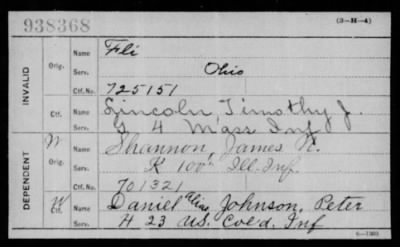 938368
(3-H-4)
INVALID
Orig.
Name Fli
Serv. Ohio
Ctf. No. 725151
Ctf.
Name Lincoln, Timothy J.
Serv. G 4 Mass Inf
DEPENDENT
W Orig.
Name Shannon, James
Serv. K 100th Ill. Inf.
Ctf. No. 701321
W Ctf.
Name Daniel alias Johnson, Peter
Serv. H 23 US. Col'd. Inf